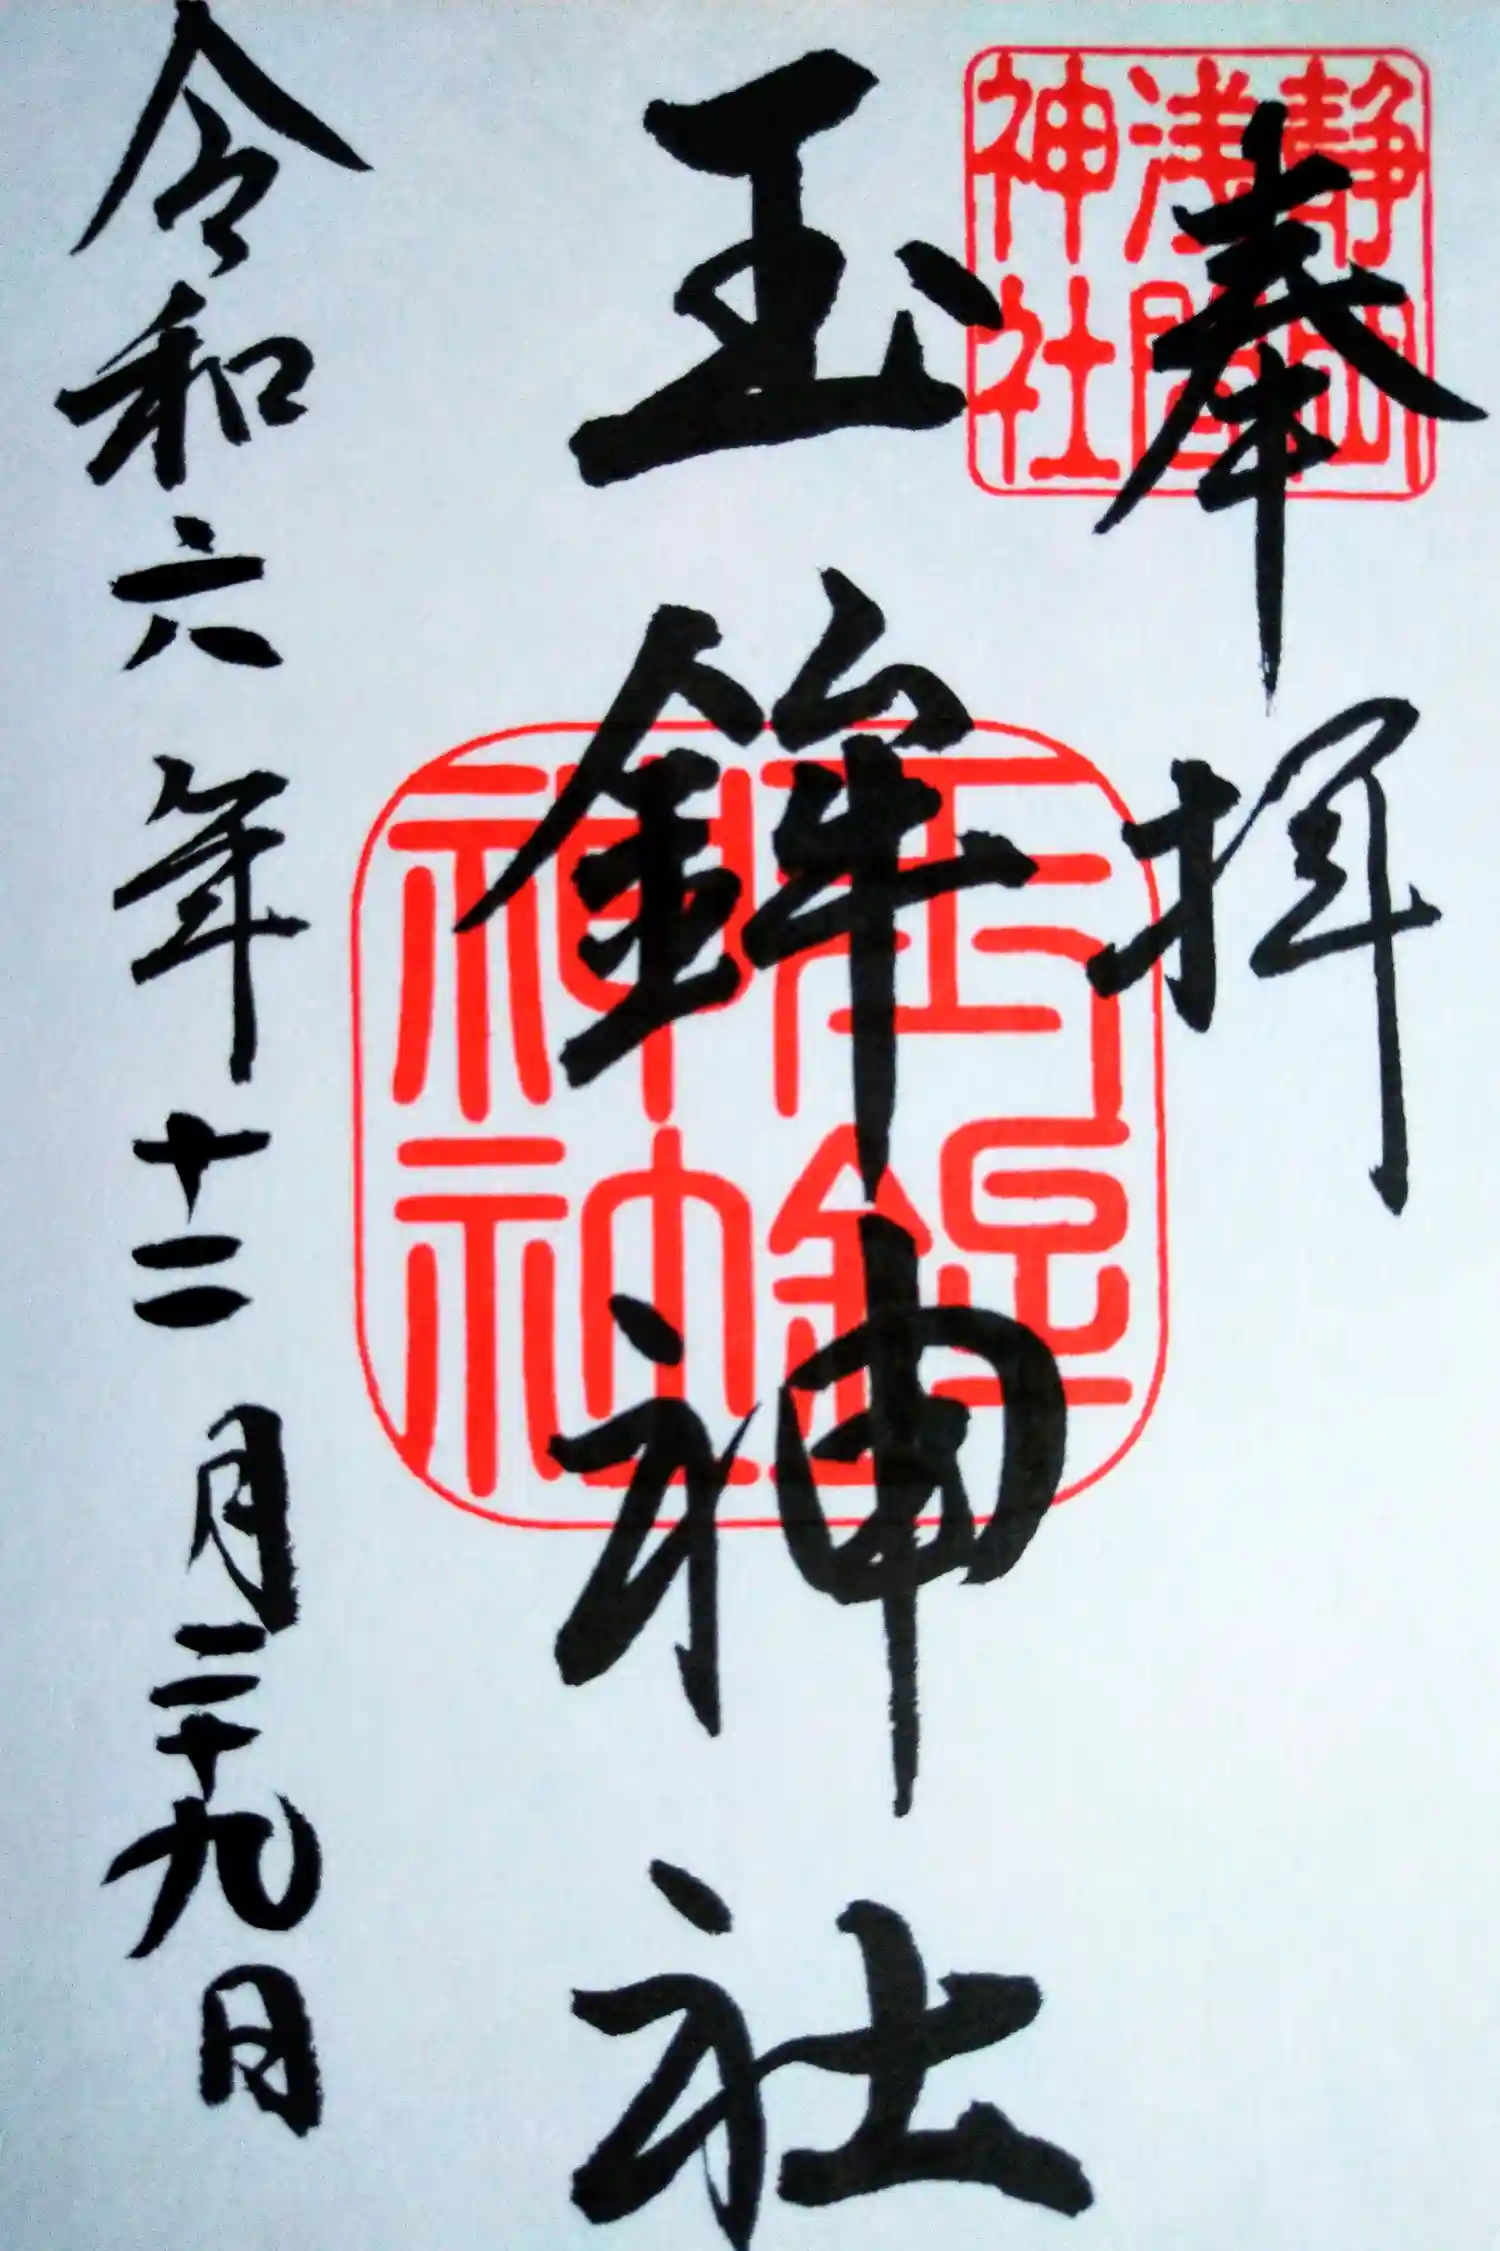 奉拝
静岡
浅間
神社
玉鉾神社
令和六年十二月二十九日